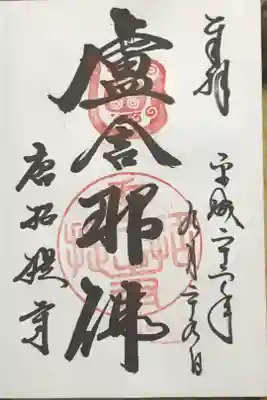 奉拝
平成二十六年
九月二十九日
盧舎那佛
唐招提寺